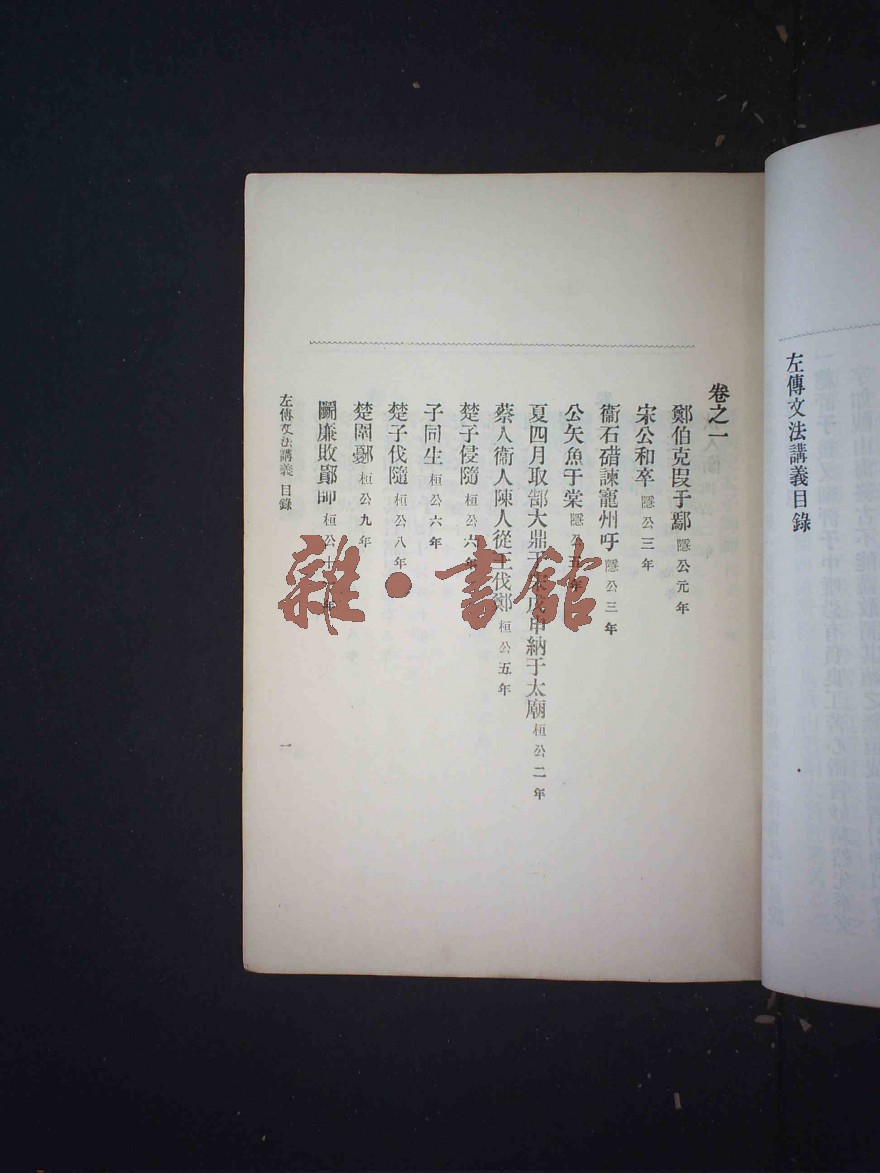 左傳文法講義目錄
卷之一
鄭伯克段于鄢 隱公元年
宋公和卒 隱公三年
衞石碏諫寵州吁 隱公三年
公矢魚于棠 隱公五年
夏四月取郜大鼎于宋戊申納于太廟 桓公二年
蔡人衞人陳人從王伐鄭 桓公五年
楚子侵隨 桓公六年
子同生 桓公六年
楚子伐隨 桓公八年
楚圍鄾 桓公九年
鬬廉敗鄖師 桓公十一年
左傳文法講義 目錄
一
雜·書館